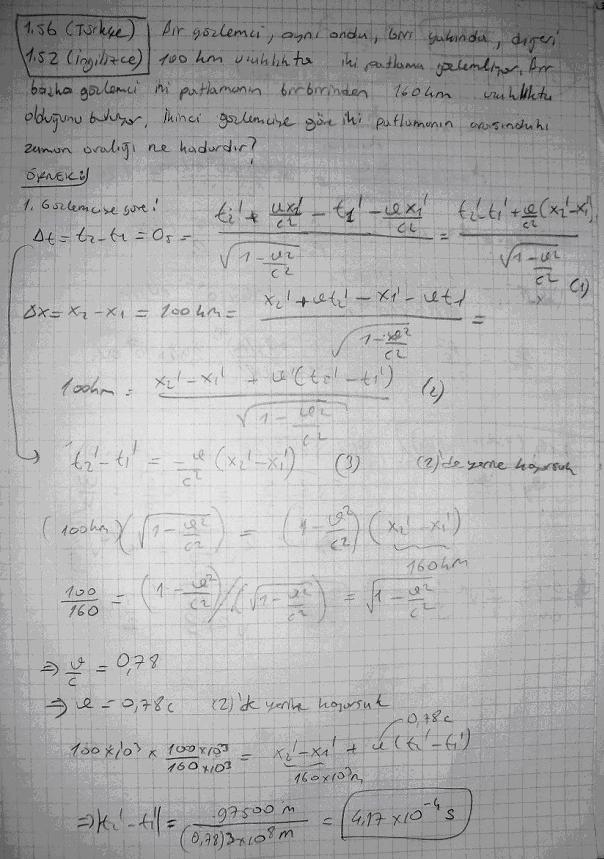 1.56 (Türkçe) Bir gözlemci, aynı anda, biri yakında, diğeri
1.52 (ingilizce) 100 km uzaklıkta iki patlama gözlemliyor. Bir
başka gözlemci iki patlamanın birbirinden 160 km uzaklıkta
olduğunu buluyor. İkinci gözlemciye göre iki patlamanın arasındaki
zaman aralığı ne kadardır?
1. Gözlemciye göre:
Δt = t₂ - t₁ = 0s = (t₂' + ux₁'/c² - t₁' - ux₁'/c²) / √(1 - u²/c²) = (t₂' - t₁' + u/c² (x₂' - x₁')) / √(1 - u²/c²) (1)
Δx = x₂ - x₁ = 100km = (x₂' + ut₂' - x₁' - ut₁') / √(1 - u²/c²) =
100km = (x₂' - x₁' + u(t₂' - t₁')) / √(1 - u²/c²) (2)
t₂' - t₁' = -u/c² (x₂' - x₁') (3) (2)'de yerine koyarsak
(100km)(√(1 - u²/c²)) = (1 - u²/c²)(x₂' - x₁')
160km
100/160 = (1 - u²/c²) / (√(1 - u²/c²)) = √(1 - u²/c²)
⇒ u/c = 0,78
⇒ u = 0,78c (2)'de yerine koyarsak
0,78c
100x10³ x 100x10³/160x10³ = x₂' - x₁' + u(t₂' - t₁')
160x10³m
⇒ |t₂' - t₁'| = 97500 m / (0,78)3x10⁸ m = 4,17 x10⁻⁴ s